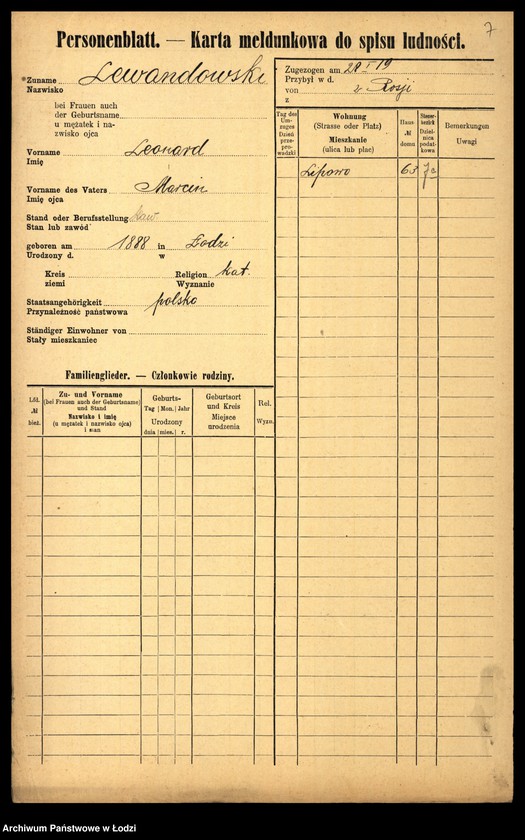 7
Personenblatt. — Karta meldunkowa do spisu ludności.
*Zuname Lewandowski
Nazwisko
bei Frauen auch
der Geburtsname
u mężatek i na-
zwisko ojca
Vorname Leonard
Imię
Vorname des Vaters Marcin
Imię ojca
Stand oder Berufsstellung kaw.
Stan lub zawód
geboren am 1888 in Łodzi
Urodzony d. w
Kreis Religion kat.
ziemi Wyznanie
Staatsangehörigkeit polska
Przynależność państwowa
Ständiger Einwohner von
Stały mieszkaniec
Zugezogen am 29 I 19
Przybył w d.
von z Rosji
z
Tag des Um-zuges Dzień prze-prowadzki
Wohnung
(Strasse oder Platz)
Mieszkanie
(ulica lub plac)
Haus- № domu
Steuer-bezirk Dziel-nica podat-kowa
Bemerkungen
Uwagi
Lipowa 63
Familienglieder. — Członkowie rodziny.
Lfd. № bież.
Zu- und Vorname
(bei Frauen auch der Geburtsname)
und Stand
Nazwisko i imię
(u mężatek i nazwisko ojca)
i stan
Geburts-
Tag Mon. Jahr
Urodzony
dnia mies. r.
Geburtsort
und Kreis
Miejsce
urodzenia
Rel.
Wyzn.
Archiwum Państwowe w Łodzi